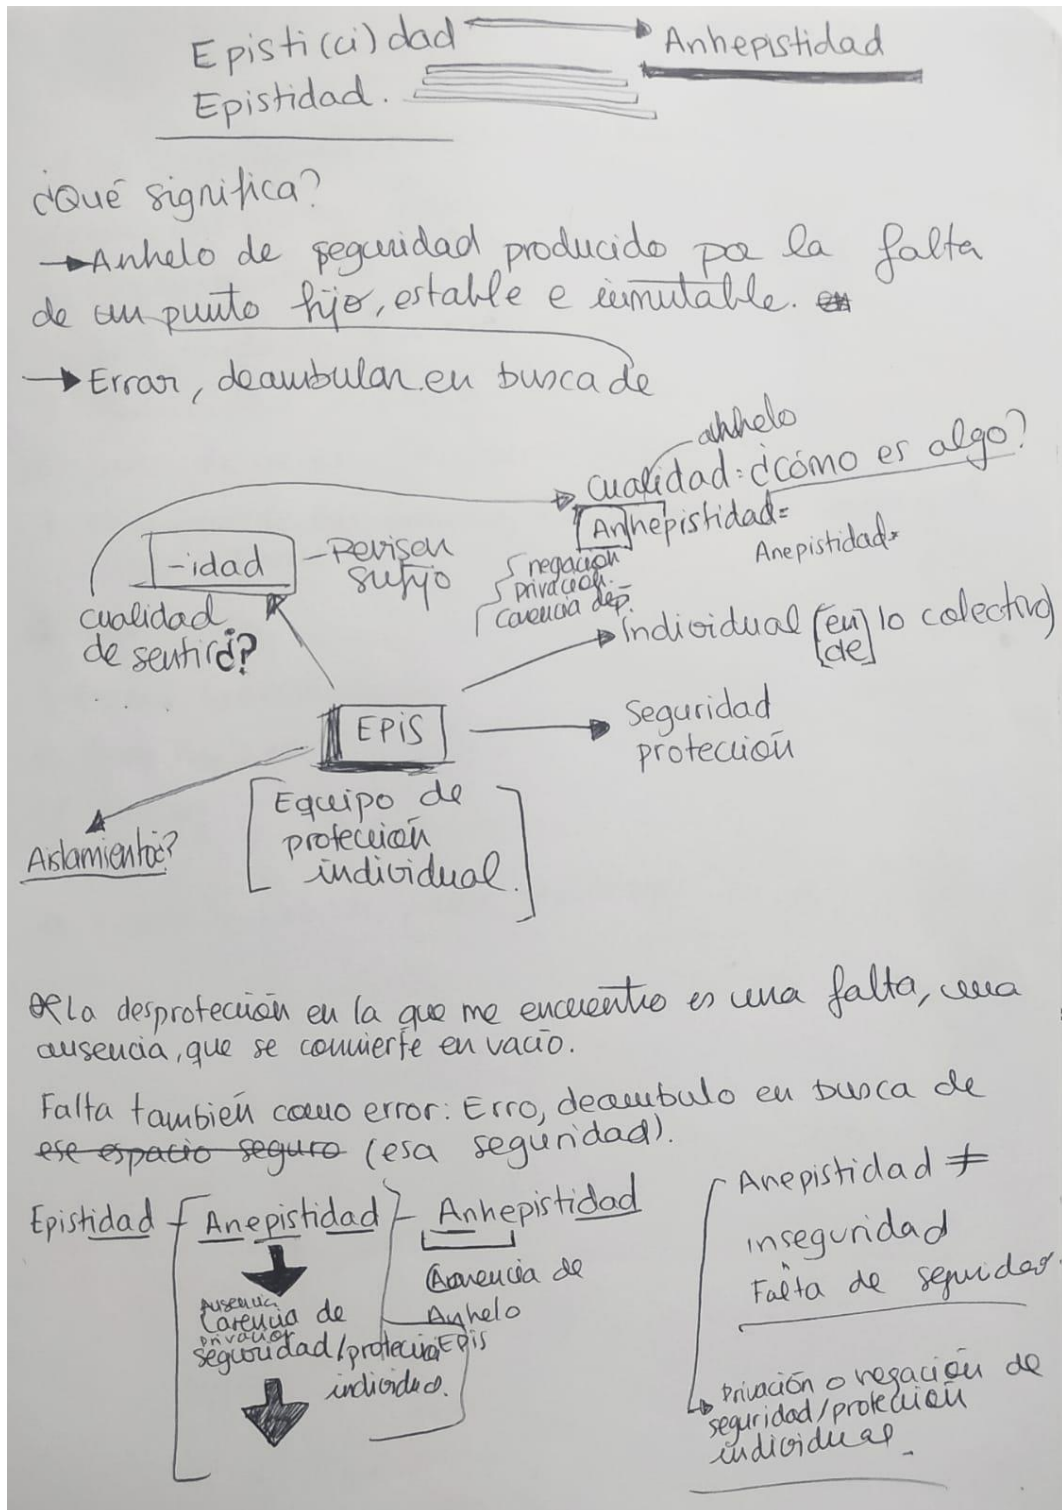 Episti(ci)dad
Anhepistidad
Epistidad.
¿Qué significa?
→Anhelo de seguridad producido por la falta
de un punto fijo, estable e inmutable.
→Errar, deambular en busca de
anhelo
cualidad: ¿cómo es algo?
Anhepistidad=
Anepistidad=
negación
privación.
Carencia de
-idad
-Revisar
sufijo
cualidad
de sentir¿?
individual [en] lo colectivo)
[de]
EPIS
Seguridad
protección
Equipo de
protección
individual.
Aislamiento¿?
La desprotección en la que me encuentro es una falta, una
ausencia, que se convierte en vacío.
Falta también como error: Erro, deambulo en busca de
ese espacio seguro (esa seguridad).
Epistidad - Anepistidad - Anhepistidad
Carencia de
Anhelo
EPIS
Ausencia
Carencia de
privación
seguridad/protección
individual.
Anepistidad ≠
inseguridad
Falta de seguridad.
→ Privación o negación de
seguridad/protección
individual.